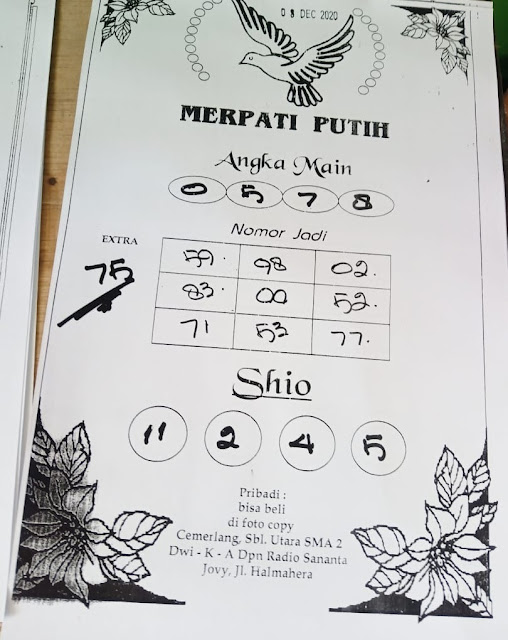 08 DEC 2020
MERPATI PUTIH
Angka Main
0 5 7 8
Nomor Jadi
EXTRA
75
59. 98 02.
83. 00 52.
71 53 77.
Shio
11 2 4 5
Pribadi :
bisa beli
di foto copy
Cemerlang, Sbl. Utara SMA 2
Dwi - K - A Dpn Radio Sananta
Jovy, Jl. Halmahera